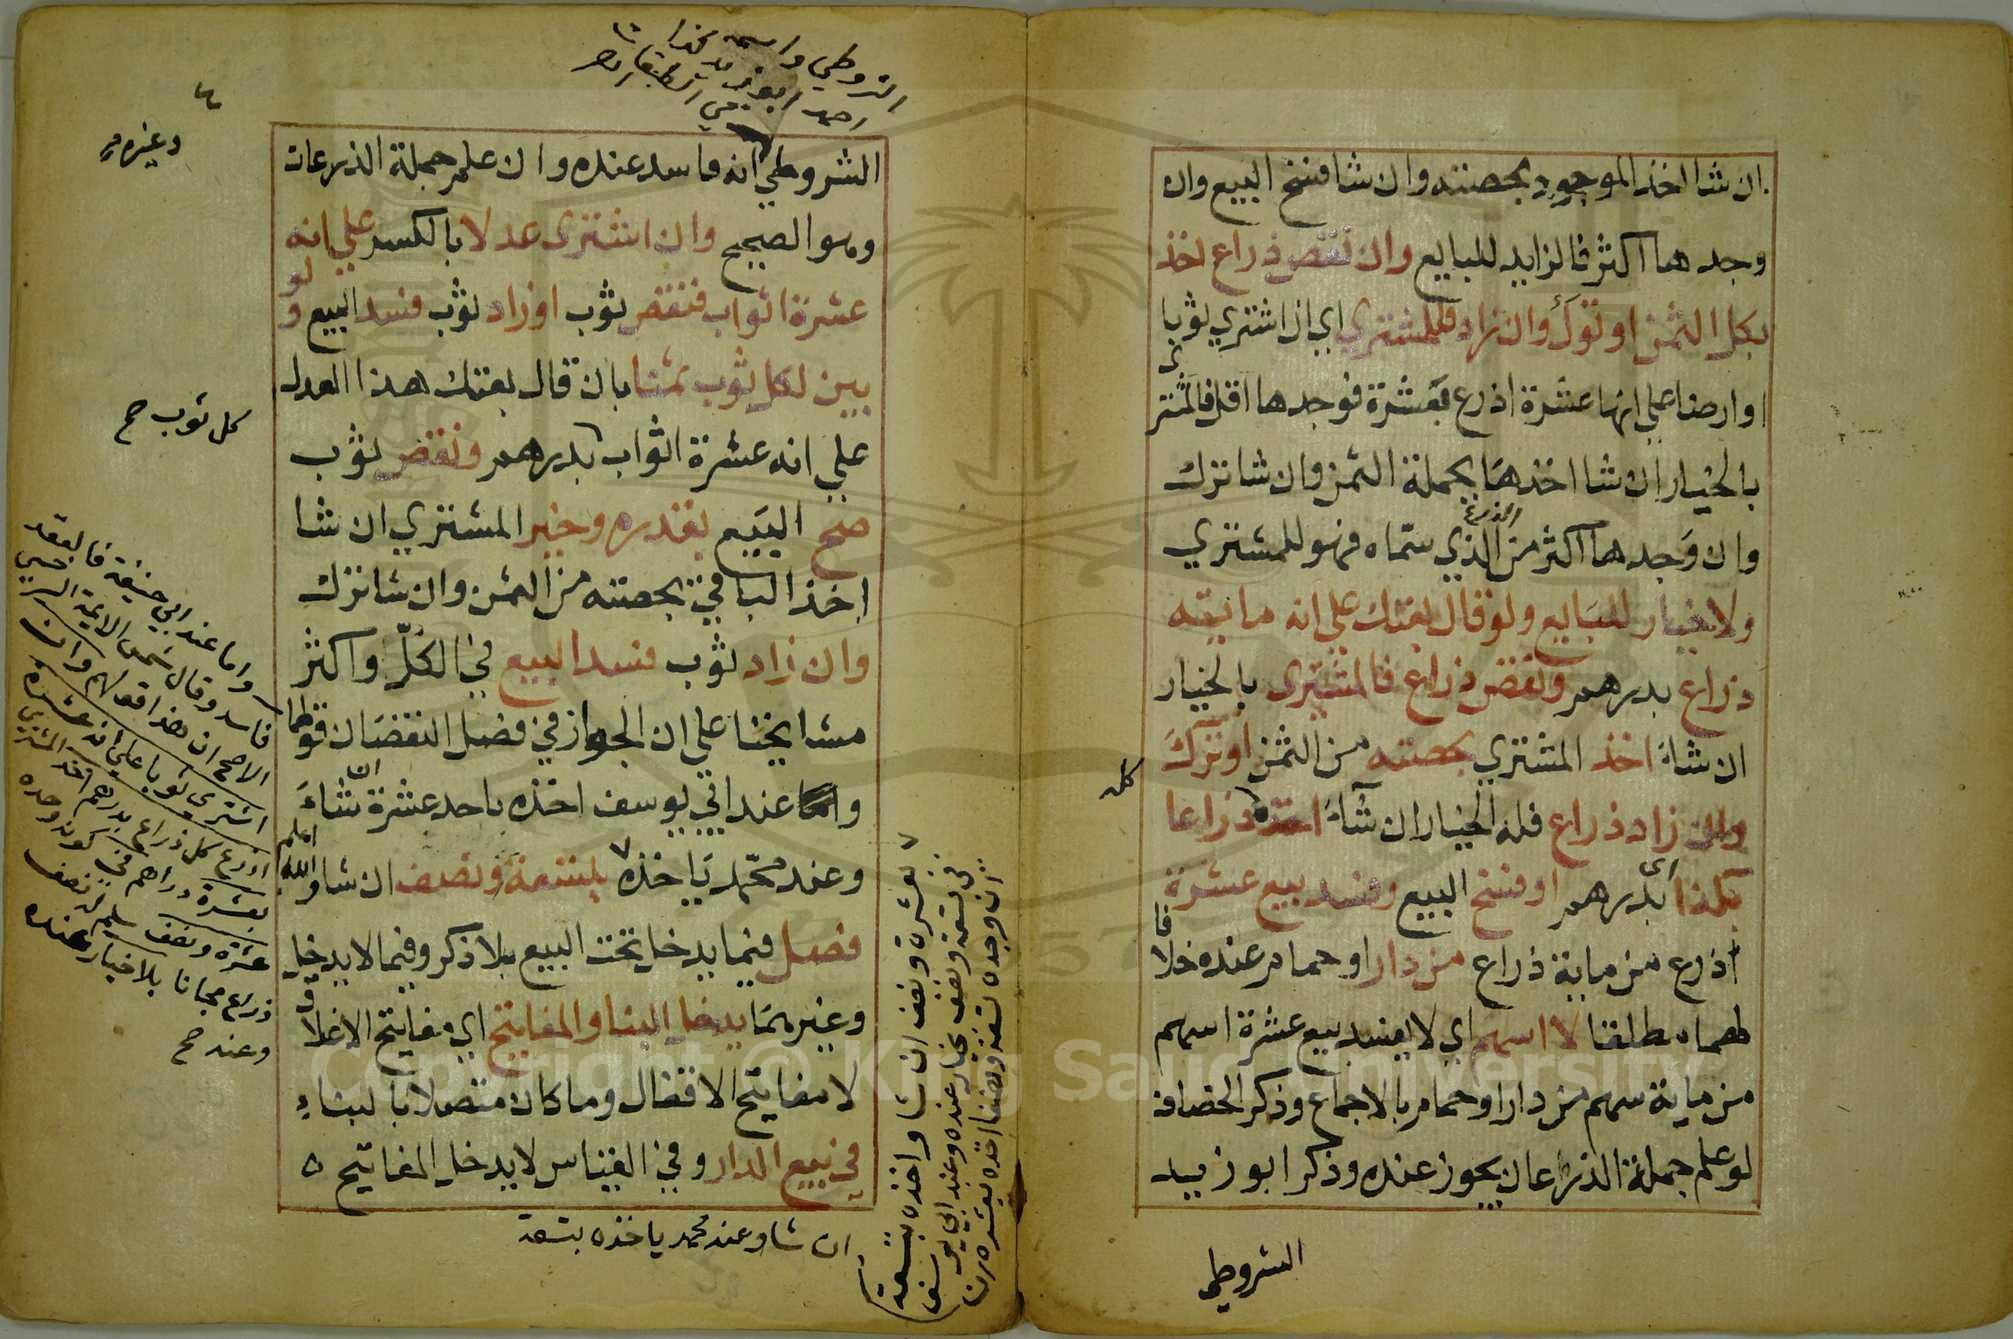 ان شا اخذ الموجود بحصته وان شا فسخ البيع وان
وجدها اكثر فالزايد للبايع وان نقص ذراع اخذ
بكل الثمن او ترك وان زاد فللمشتري اي ان اشترى ثوبا
او ارضا على انها عشرة اذرع بعشرة فوجدها اقل فالمشتري
بالخيار ان شا اخذها بجملة الثمن وان شا ترك
وان وجدها اكثر من الذرع الذي سماه فهو للمشتري
ولا خيار للبايع ولو قال بعتك على انه ماية
ذراع بدرهم ونقص ذراع فالمشترى بالخيار
ان شاء اخذ المشتري بحصته من الثمن او ترك
كل
وان زاد ذراع فله الخيار ان شاء اخذه ذراعا
بكذا اى بدرهم او فسخ البيع وفسد بيع عشرة
اذرع من ماية ذراع من دار او حمام عنده خلافا
لهما مطلقا لا اسهم اي لا يفسد بيع عشرة اسهم
من ماية سهم من دار او حمام بالاجماع وذكر الخصاف
لو علم جملة الذرعان يجوز عنده وذكر ابو زيد
الشروطي
الشروطي واسمه
احمد ابو زيد كذا
في الطبقات
٤
وغيره
الشروطي انه فاسد عنده وان علم جملة الذرعات
وهو الصحيح وان اشترى عدلا بالكسر على انه
عشرة اثواب فنقص ثوب او زاد ثوب فسد البيع ولو
بين لكل ثوب ثمنا بان قال بعتك هذا العدل
على انه عشرة اثواب بدرهم ونقص ثوب
كل ثوب صح
صح البيع بقدره وخير المشتري ان شا
اخذ الباقي بحصته من الثمن وان شا ترك
وان زاد ثوب فسد البيع في الكل واكثر
مشايخنا على ان الجواز في فصل النقصان قولهما
واما عند ابي يوسف اخذه باحد عشرة ان شاء
وعند محمد ياخذه بتسعة ونصف ان شا والله اعلم
فصل فيما يدخل تحت البيع بلا ذكر وفيما لا يدخل
وغيرهما يدخل البنا والمفاتيح اي مفاتيح الاغلاق
لا مفاتيح الاقفال وما كان متصلا بالبناء
في بيع الدار وفي القياس لا يدخل المفاتيح ٥
واما عند ابي حنيفة فالعقد
فاسد وقال شمس الايمة السرخسي
الاصح ان هذا قولهم وان
اشترى ثوبا على انه عشرة
اذرع كل ذراع بدرهم اخذ المشتري
بعشرة دراهم في كونه وحده
عشرة ونصف سلم له نصف
ذراع مجانا بلا خيار عنده
وعند صح
بعشرة ونصف ان شا واخذه بتسعة
في تسعة ونصف بخيار عنده وعند ابي يوسف
ان وجده تسعة ونصفا اخذه بعشرة
ان شا وعند محمد ياخذه بتسعة
Copyright © King Saud University
1957